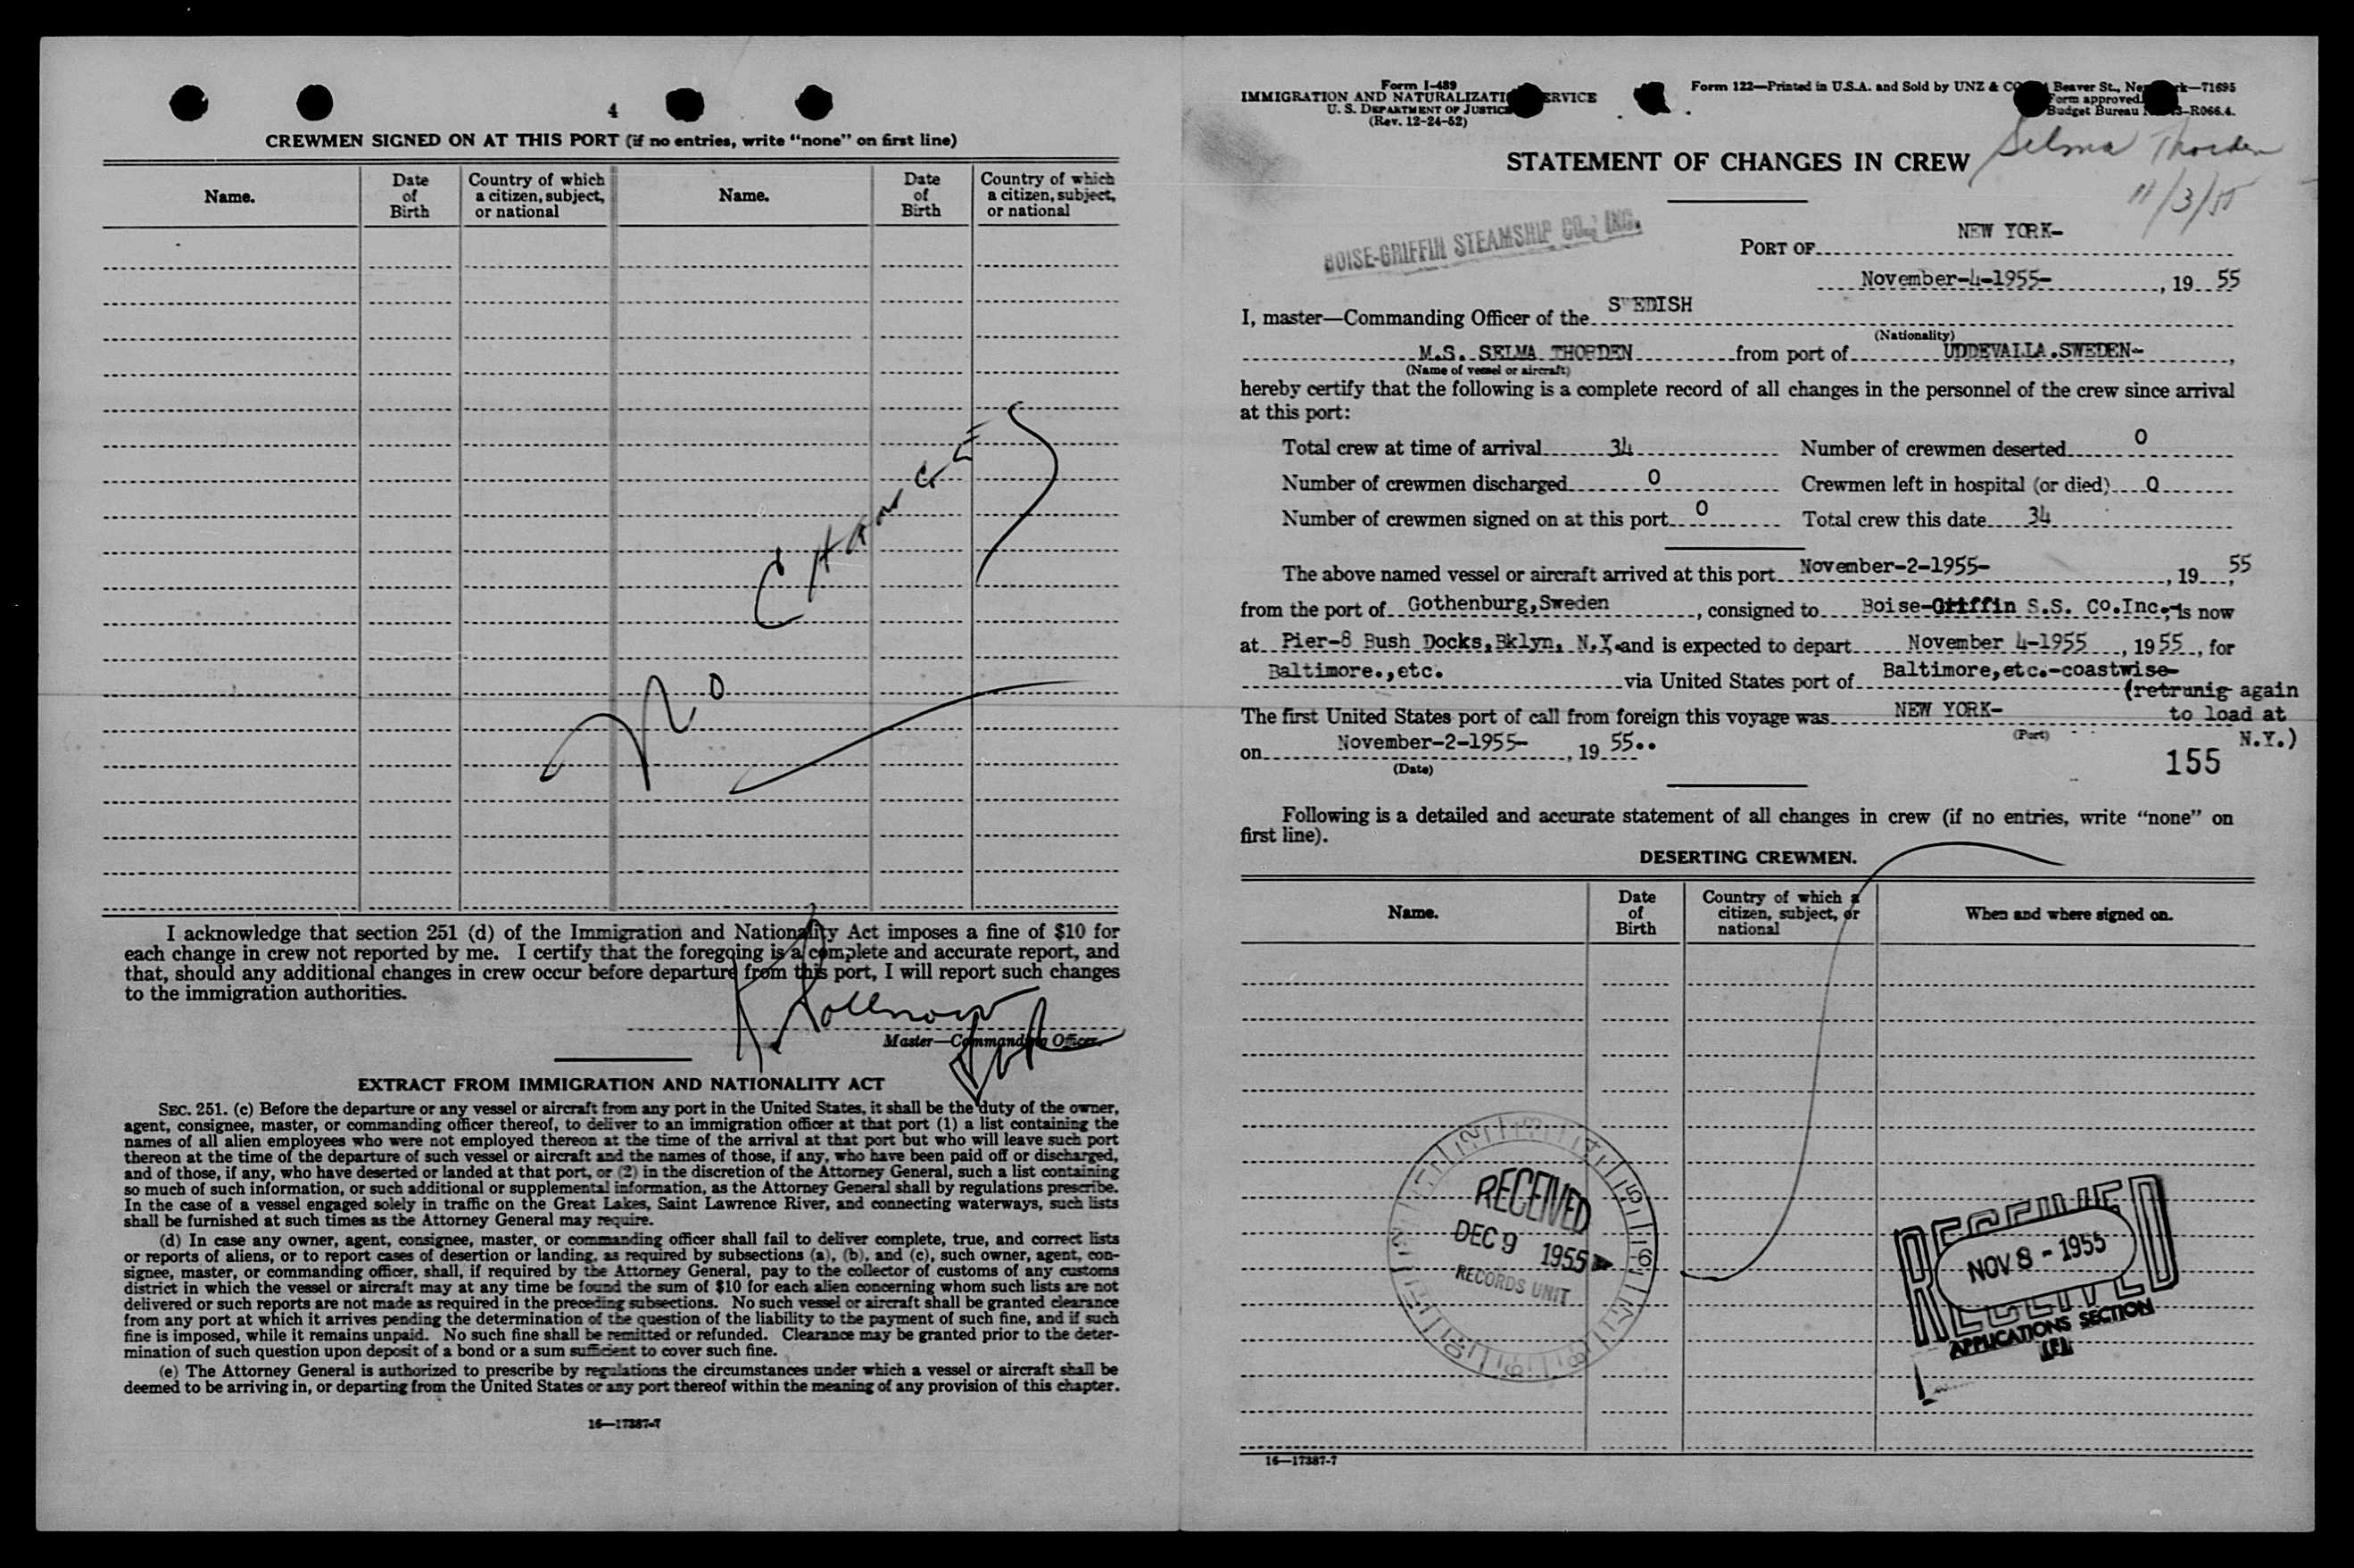 4
CREWMEN SIGNED ON AT THIS PORT (if no entries, write “none” on first line)
Name. Date of Birth Country of which a citizen, subject, or national Name. Date of Birth Country of which a citizen, subject, or national
NO CHANGES
I acknowledge that section 251 (d) of the Immigration and Nationality Act imposes a fine of $10 for
each change in crew not reported by me. I certify that the foregoing is a complete and accurate report, and
that, should any additional changes in crew occur before departure from this port, I will report such changes
to the immigration authorities.
Master—Commanding Officer.
EXTRACT FROM IMMIGRATION AND NATIONALITY ACT
SEC. 251. (c) Before the departure or any vessel or aircraft from any port in the United States, it shall be the duty of the owner,
agent, consignee, master, or commanding officer thereof, to deliver to an immigration officer at that port (1) a list containing the
names of all alien employees who were not employed thereon at the time of the arrival at that port but who will leave such port
thereon at the time of the departure of such vessel or aircraft and the names of those, if any, who have been paid off or discharged,
and of those, if any, who have deserted or landed at that port, or (2) in the discretion of the Attorney General, such a list containing
so much of such information, or such additional or supplemental information, as the Attorney General shall by regulations prescribe.
In the case of a vessel engaged solely in traffic on the Great Lakes, Saint Lawrence River, and connecting waterways, such lists
shall be furnished at such times as the Attorney General may require.
(d) In case any owner, agent, consignee, master, or commanding officer shall fail to deliver complete, true, and correct lists
or reports of aliens, or to report cases of desertion or landing, as required by subsections (a), (b), and (c), such owner, agent, con-
signee, master, or commanding officer, shall, if required by the Attorney General, pay to the collector of customs of any customs
district in which the vessel or aircraft may at any time be found the sum of $10 for each alien concerning whom such lists are not
delivered or such reports are not made as required in the preceding subsections. No such vessel or aircraft shall be granted clearance
from any port at which it arrives pending the determination of the question of the liability to the payment of such fine, and if such
fine is imposed, while it remains unpaid. No such fine shall be remitted or refunded. Clearance may be granted prior to the deter-
mination of such question upon deposit of a bond or a sum sufficient to cover such fine.
(e) The Attorney General is authorized to prescribe by regulations the circumstances under which a vessel or aircraft shall be
deemed to be arriving in, or departing from the United States or any port thereof within the meaning of any provision of this chapter.
16—17387-7
Form I-489
IMMIGRATION AND NATURALIZATI ERVICE
U. S. DEPARTMENT OF JUSTICE
(Rev. 12-24-52)
Form 122—Printed in U.S.A. and Sold by UNZ & CO Beaver St., Ne rk—71695
Form approved.
Budget Bureau -R066.4.
STATEMENT OF CHANGES IN CREW
Selma Thorden
11/3/55
BOISE-GRIFFIN STEAMSHIP CO., INC.
PORT OF NEW YORK-
November-4-1955- , 19 55
I, master—Commanding Officer of the SWEDISH
(Nationality)
M.S. SELMA THORDEN from port of UDDEVALLA.SWEDEN- ,
(Name of vessel or aircraft)
hereby certify that the following is a complete record of all changes in the personnel of the crew since arrival
at this port:
Total crew at time of arrival 34 Number of crewmen deserted 0
Number of crewmen discharged 0 Crewmen left in hospital (or died) 0
Number of crewmen signed on at this port 0 Total crew this date 34
The above named vessel or aircraft arrived at this port November-2-1955- , 19 55,
from the port of Gothenburg,Sweden , consigned to Boise-Griffin S.S. Co.Inc.,-is now
at Pier-8 Bush Docks,Bklyn, N.Y. and is expected to depart November 4-1955 , 19 55 , for
Baltimore.,etc. via United States port of Baltimore,etc.-coastwise-
(retrunig again
The first United States port of call from foreign this voyage was NEW YORK- to load at
(Port) N.Y.)
on November-2-1955- , 19 55..
(Date)
155
Following is a detailed and accurate statement of all changes in crew (if no entries, write “none” on
first line).
DESERTING CREWMEN.
Name. Date of Birth Country of which a citizen, subject, or national When and where signed on.
RECEIVED
DEC 9 1955
RECORDS UNIT
RECEIVED
NOV 8 - 1955
RECEIVED
APPLICATIONS SECTION
(E)
16—17387-7